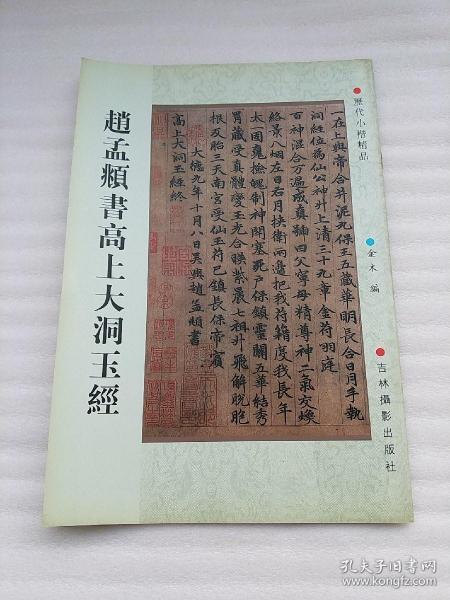 趙孟頫書高上大洞玉經
歷代小楷精品
金木 編
吉林攝影出版社
一在上與帝合并泥丸保王五藏華明長合日月手執
洞經位為仙公神升上清三十九章金符羽庭
百神混合万遍成真歸曰父寧母精尊神二氣交煥
絡景八烟左日右月挾衛兩邊把我符籍度我長年
太一固魂撿魄制神開塞死戶保鎮靈關五華結秀
胃藏受真體變玉光合映紫晨七祖升飛解脫胞
根及胎三天南宮受仙玉符已鎮長保帝賓
大德九年十月八日吳興趙孟頫書
高上大洞玉經終
孔夫子旧书网
www.kongfz.com